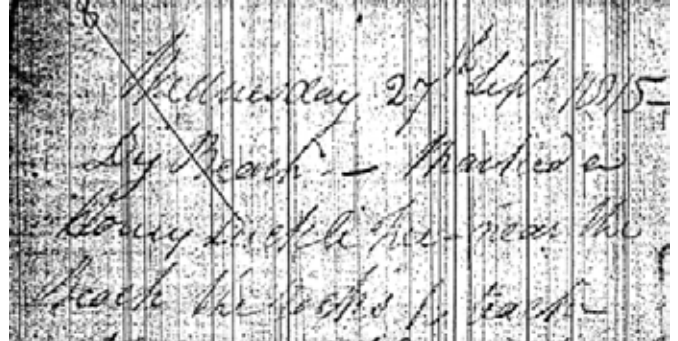 8
Wednesday 27th Sept. 1815 -
By Beach - Marked a
Honey Suckle Tree - near the
Beach the rocks